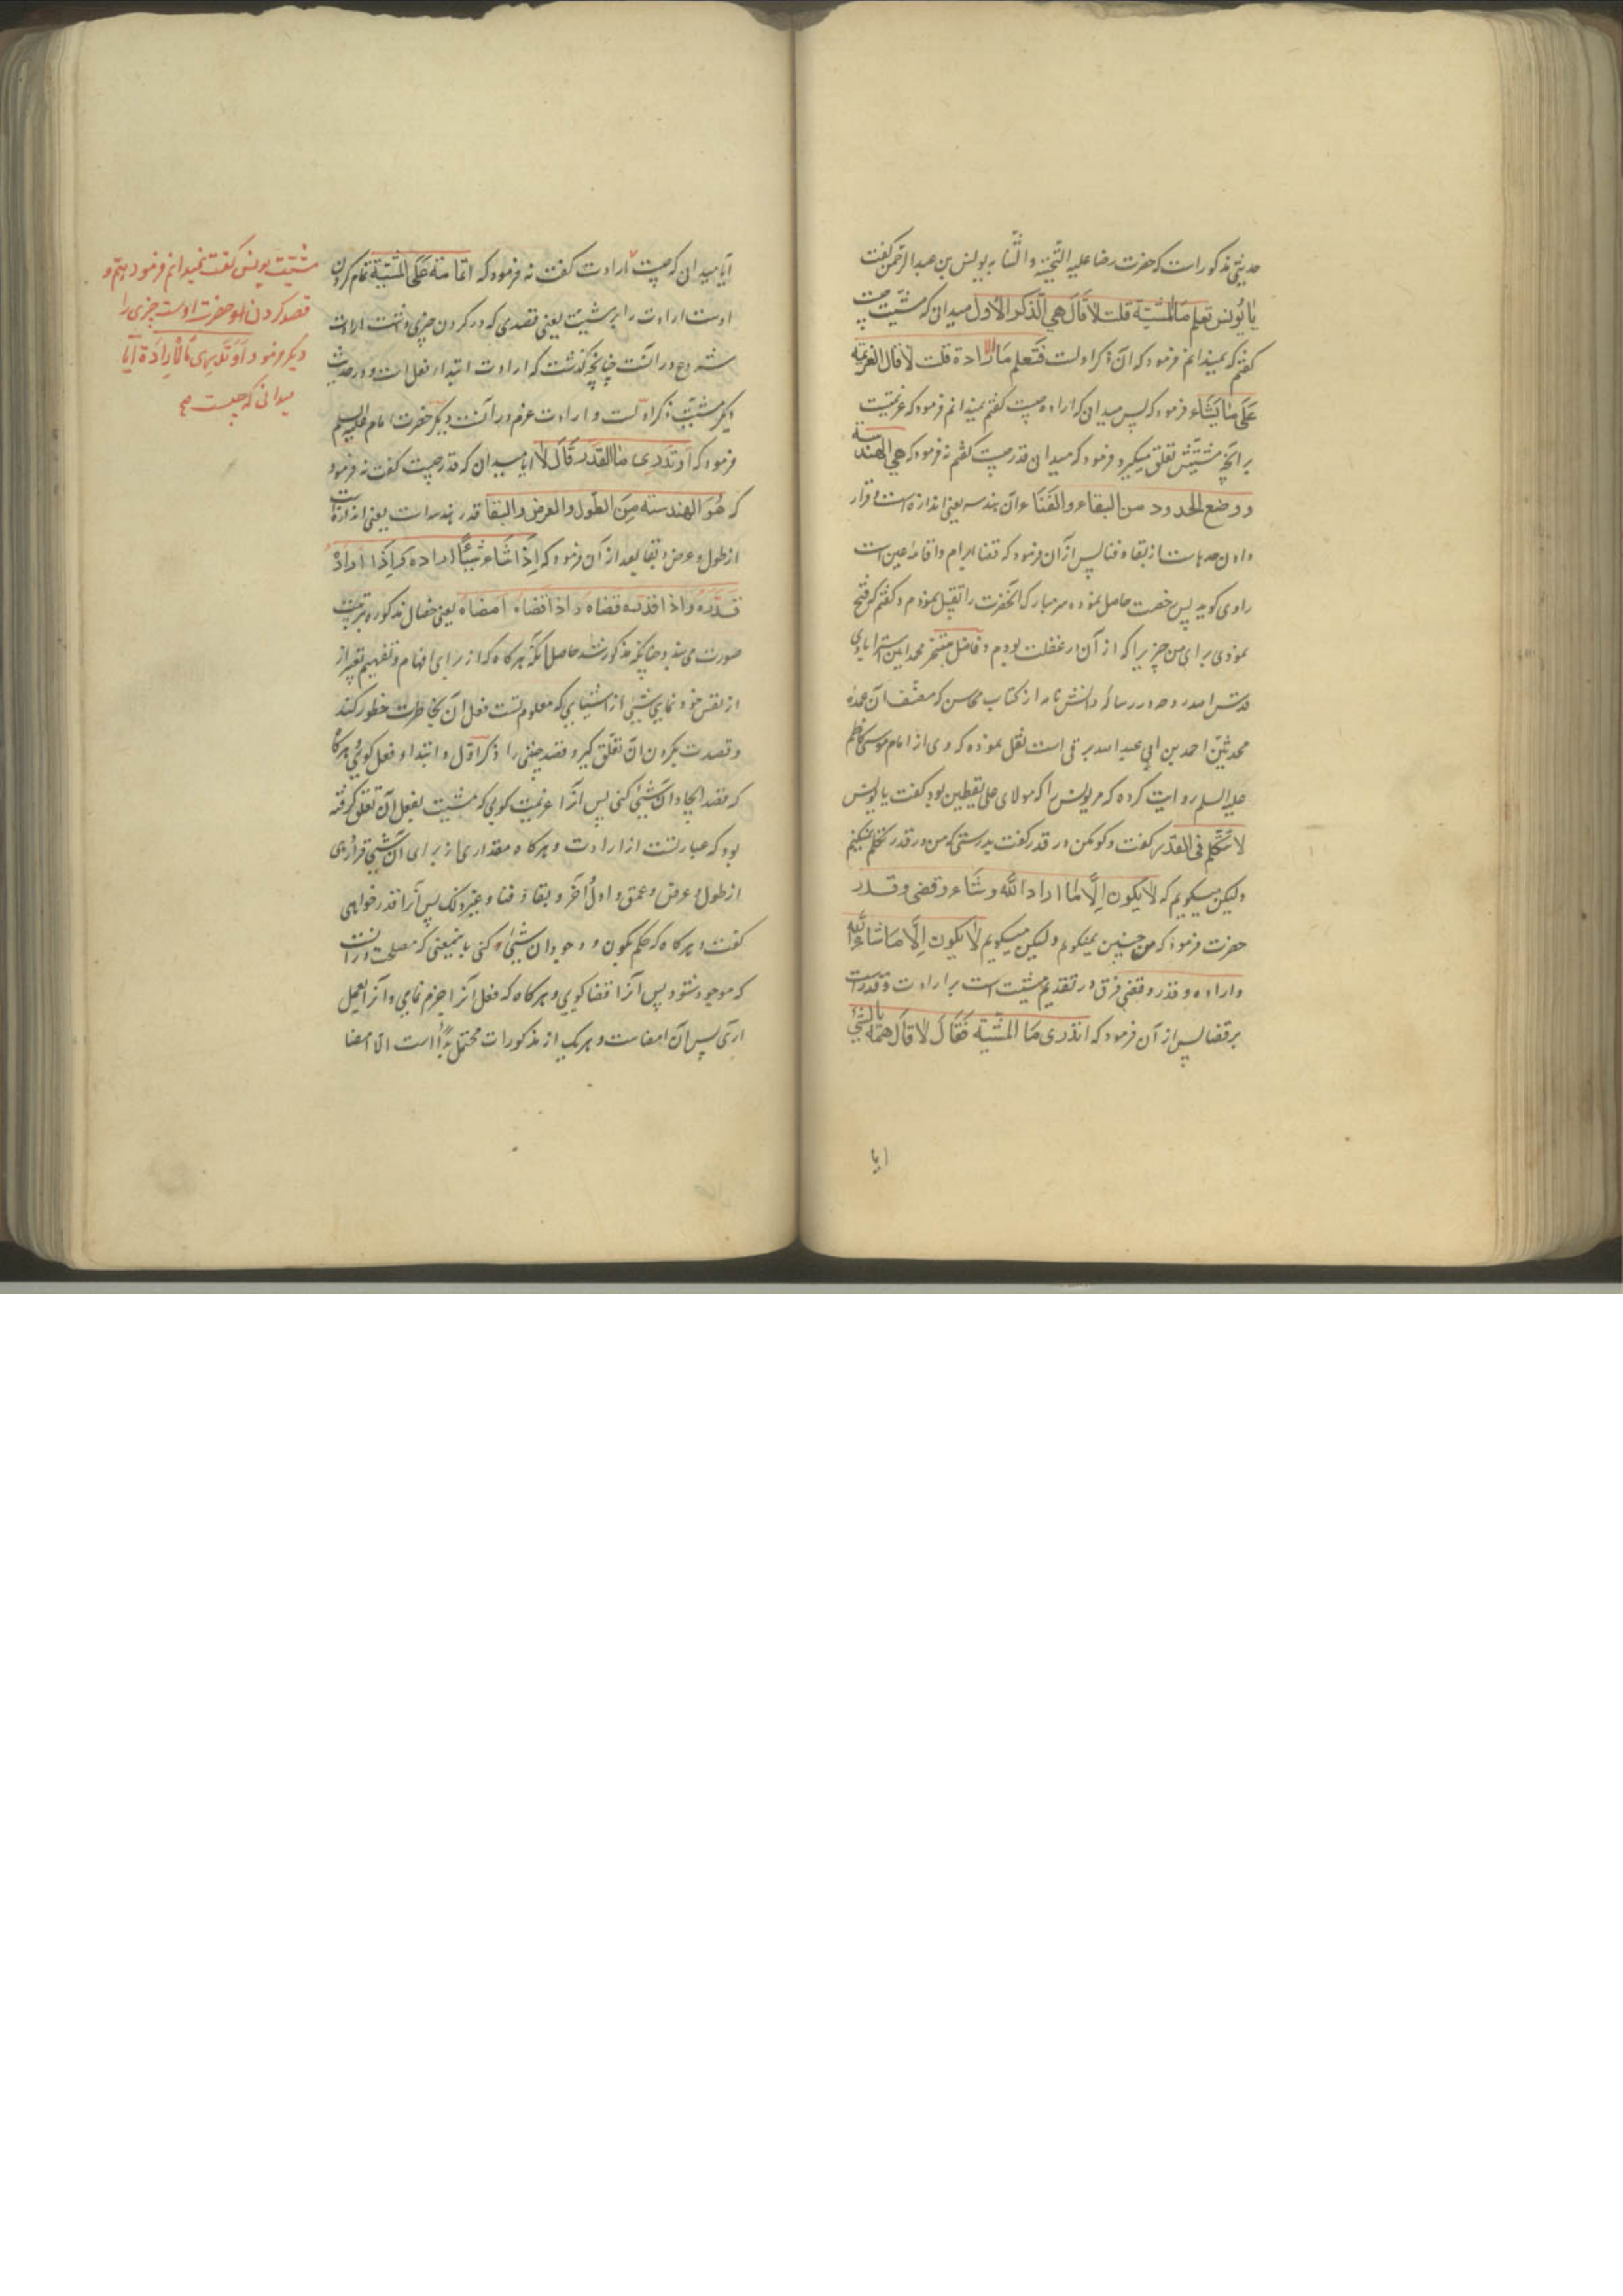 حدیثی مذکور است که حضرت رضا علیه التحیة والثنا به یونس بن عبد الرحمن گفت
یا یُونس تعلم مَا المشیّة قلت لا قَالَ هی الذّکر الاول میدانی که مشیّت چیست
گفتم که نمیدانم فرمود که آن ذکر اولست فَتَعلم مَا الارادة قلت لا قال العزیمة
عَلَی مٰا یَشَاء فرمود که پس میدانی که اراده چیست گفتم نمیدانم فرمود که عزیمتیست
بر آنچه مشیّتش تعلق میگیرد فرمود که میدانی قدر چیست گفتم نه فرمود که هی الهندسة
و وضع الحدود من البقاء والفَنَاء و آن هندسه یعنی اندازه است و قرار
دادن حدهاست از بقاء و فنا پس از آن فرمود که قضا ابرام و اقامه عین است
راوی گوید پس رخصت حاصل نموده سر مبارک آنحضرت را تقبیل نمودم و گفتم که فتح
نمودی برای من چیزیرا که از آن در غفلت بودم و فاضل متبحّر محمد امین استرابادی
قدّس الله روحه در رسالهٔ دانش نامه از کتاب محاسن که مصنف آن عمدهٔ
محدثین احمد بن ابی عبد الله برقی است نقل نموده که وی از امام موسی کاظم
علیه السلم روایت کرده که مر یونس را که مولای علی یقطین بود گفت یا یونس
لا تتکلم فی القدر گفت و گو مکن در قدر گفت بدرستی که من در قدر تکلم نمیکنم
ولیکن میگویم که لا یکون اِلّا مٰا اراد اللّه وشَاء وقضی وقدر
حضرت فرمود که من چنین نمیگویم ولیکن میگویم لا یکون اِلّا مَا شَاء اللّه
و اراده و قدر و قضی فرق در تقدیم مشیت است بر ارادت و قدر است
بر قضا پس از آن فرمود که اتدری مَا المشیّة فَقَالَ لا قَالَ همّه بالشئ
ایا
آیا میدانی که چیست ارادت گفت نه فرمود که اتمامه عَلَی المشیّة تمام کردن
اوست ارادت را بر مشیت یعنی قصدی که در کردن چیزی داشت ارادت
شروع در آنست چنانچه گذشت که ارادت ابتداء فعل است و در حدیث
دیگر مشیّت ذکر اولست و ارادت عزم در آنست دیگر حضرت امام علیه السلم
فرمود که اَو تَدری مٰا القدَر قَالَ لا آیا میدانی که قدر چیست گفت نه فرمود
که هُوَ الهندسة مِنَ الطول والعرض والبقا قدر هندسه است یعنی اندازه است
از طول و عرض و بقا بعد از آن فرمود که اِذَا شَاء شَیئاً اراده وَاِذَا ارادَهُ
قدّره واذا قدّره قضاه واذا قضاه امضاه یعنی خصال مذکوره بترتیب
صورت می‌بندد چنانچه مذکور شد حاصل آنکه هرگاه که از برای افهام و تفهیم تعبیر از
از نفس خود نمایی شیئی از اشیایی که معلوم تست فعل آن بخاطرت خطور کند
و قصدت بکردن آن تعلّق گیرد قصد چنین را ذکر اوّل و ابتداء فعل گویی و هرگاه
که قصد ایجاد آن شیئی کنی پس آنرا عزیمت گویی که مشیت بفعل آن تعلق گرفته
بود که عبارتست از ارادت و هرگاه مقداری از برای آن شیئی قرار دهی
از طول و عرض و عمق و اول و آخر و بقا و فنا و غیر ذلک پس آنرا قدر خواهی
گفت و هرگاه که حکم بکون و وجود آن شیئی کنی باینمعنی که مصلحت در آنست
که موجود شود پس آنرا قضا گویی و هرگاه که فعل آنرا جزم نمایی و آنرا بعمل
آری پس آن امضاست و هر یک از مذکورات محتمل بدا است الا امضا
مشیّت یونس گفت نمیدانم فرمود همّ و
قصد کردن او حضرت اوست چیزی را
دیگر فرمود اَوَ تَدری مَا الْاِرادَة آیا
میدانی که چیست صح